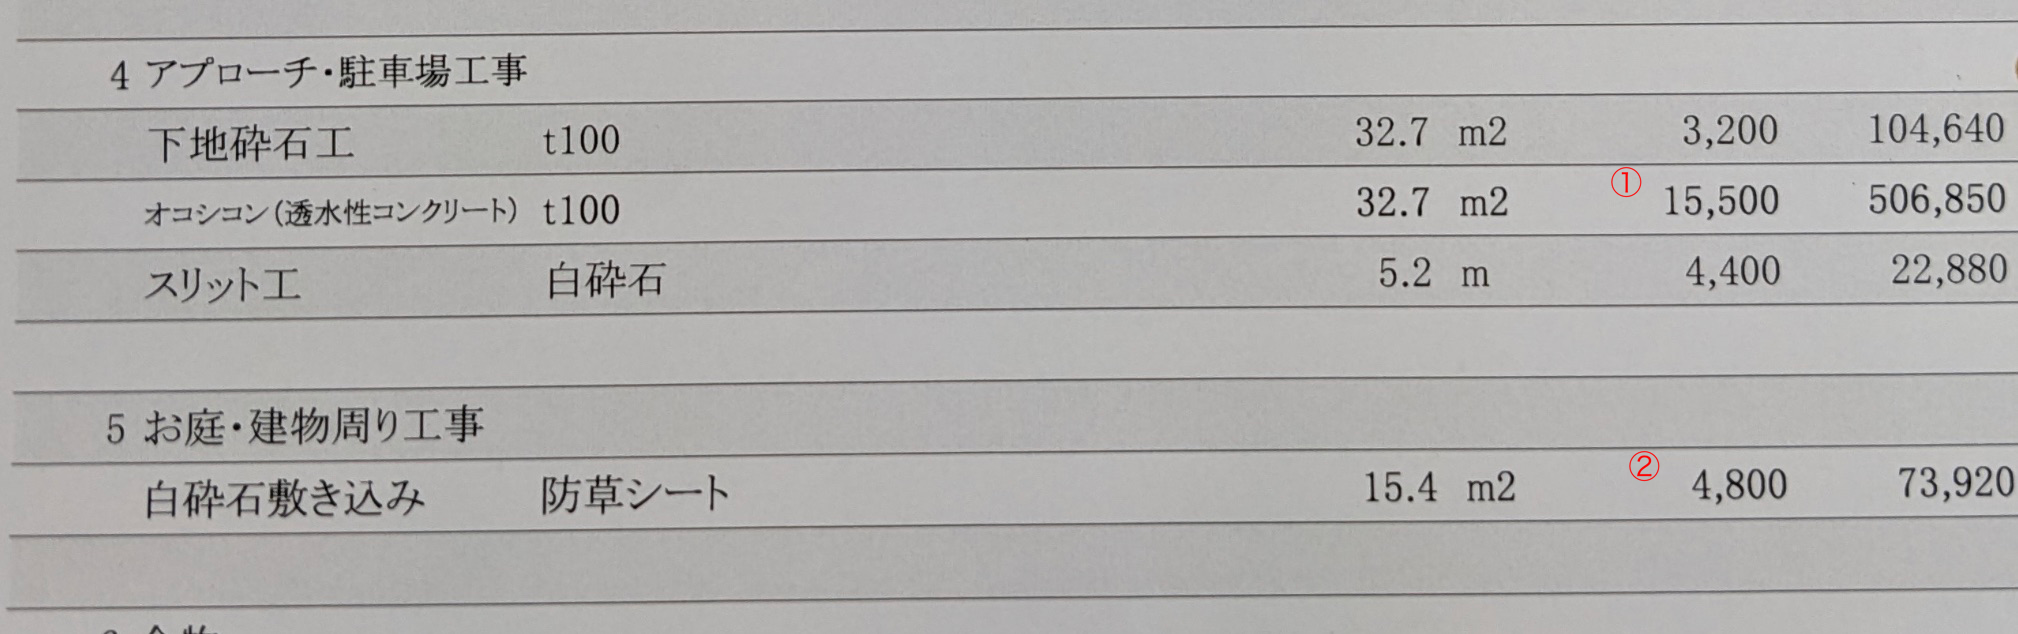 4 アプローチ・駐車場工事
下地砕石工 t100 32.7 m2 3,200 104,640
オコシコン(透水性コンクリート) t100 32.7 m2 ① 15,500 506,850
スリット工 白砕石 5.2 m 4,400 22,880
5 お庭・建物周り工事
白砕石敷き込み 防草シート 15.4 m2 ② 4,800 73,920